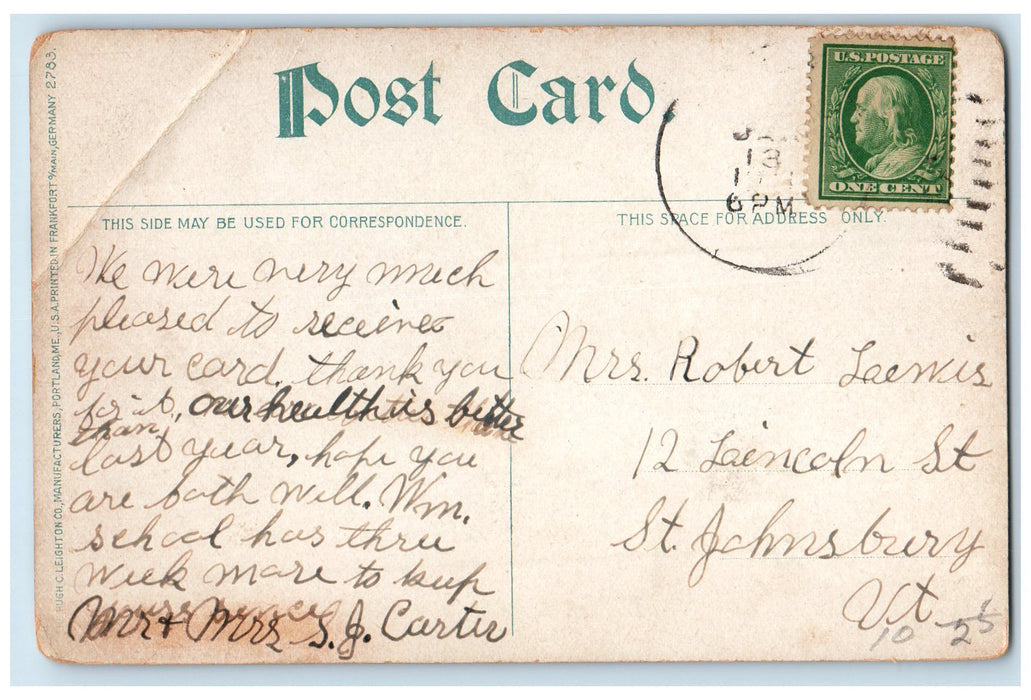 Post Card
U.S. POSTAGE
ONE CENT
13
6 PM
THIS SIDE MAY BE USED FOR CORRESPONDENCE.
THIS SPACE FOR ADDRESS ONLY.
HUGH C. LEIGHTON CO., MANUFACTURERS, PORTLAND, ME., U.S.A. PRINTED IN FRANKFORT o/MAIN, GERMANY 2783.
We were very much
pleased to receive
your card. thank you
for it, our health is better
than
last year, hope you
are both well. Wm.
school has three
week more to keep
Mr + Mrs S. J. Carter
Mrs. Robert Laewis
12 Laincoln St
St. Johnsbury
Vt
10 25